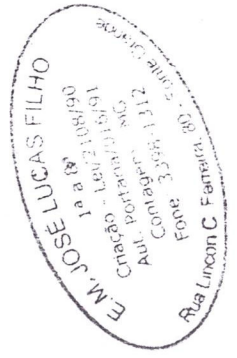 E. M. JOSÉ LUCAS FILHO
1ª a 8ª
Criação - Lei 2108/90
Aut. Portaria 916/91
Contagem MG
Fone 3358-1312
Rua Lincon C. Farreira, 80 - Fonte Grande